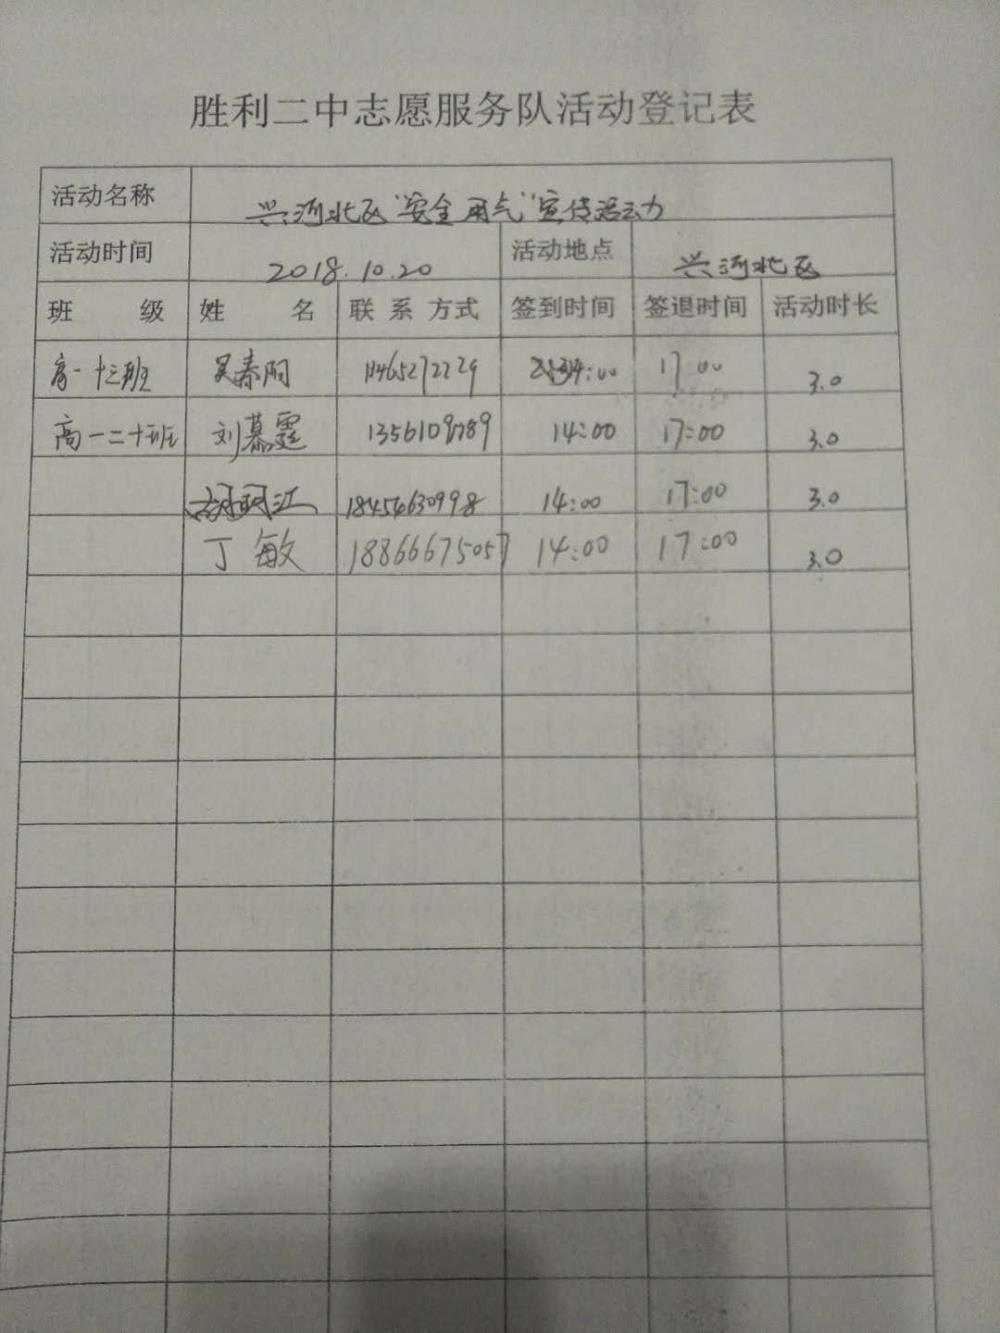 胜利二中志愿服务队活动登记表
活动名称 兴河北区"安全用气"宣传活动
活动时间 2018.10.20 活动地点 兴河北区
班 级 姓 名 联系方式 签到时间 签退时间 活动时长
高一十三班 吴泰阳 14:00 17:00 3.0
高一二十班 刘慕霆 13561098789 14:00 17:00 3.0
18454630998 14:00 17:00 3.0
丁敏 18866675057 14:00 17:00 3.0